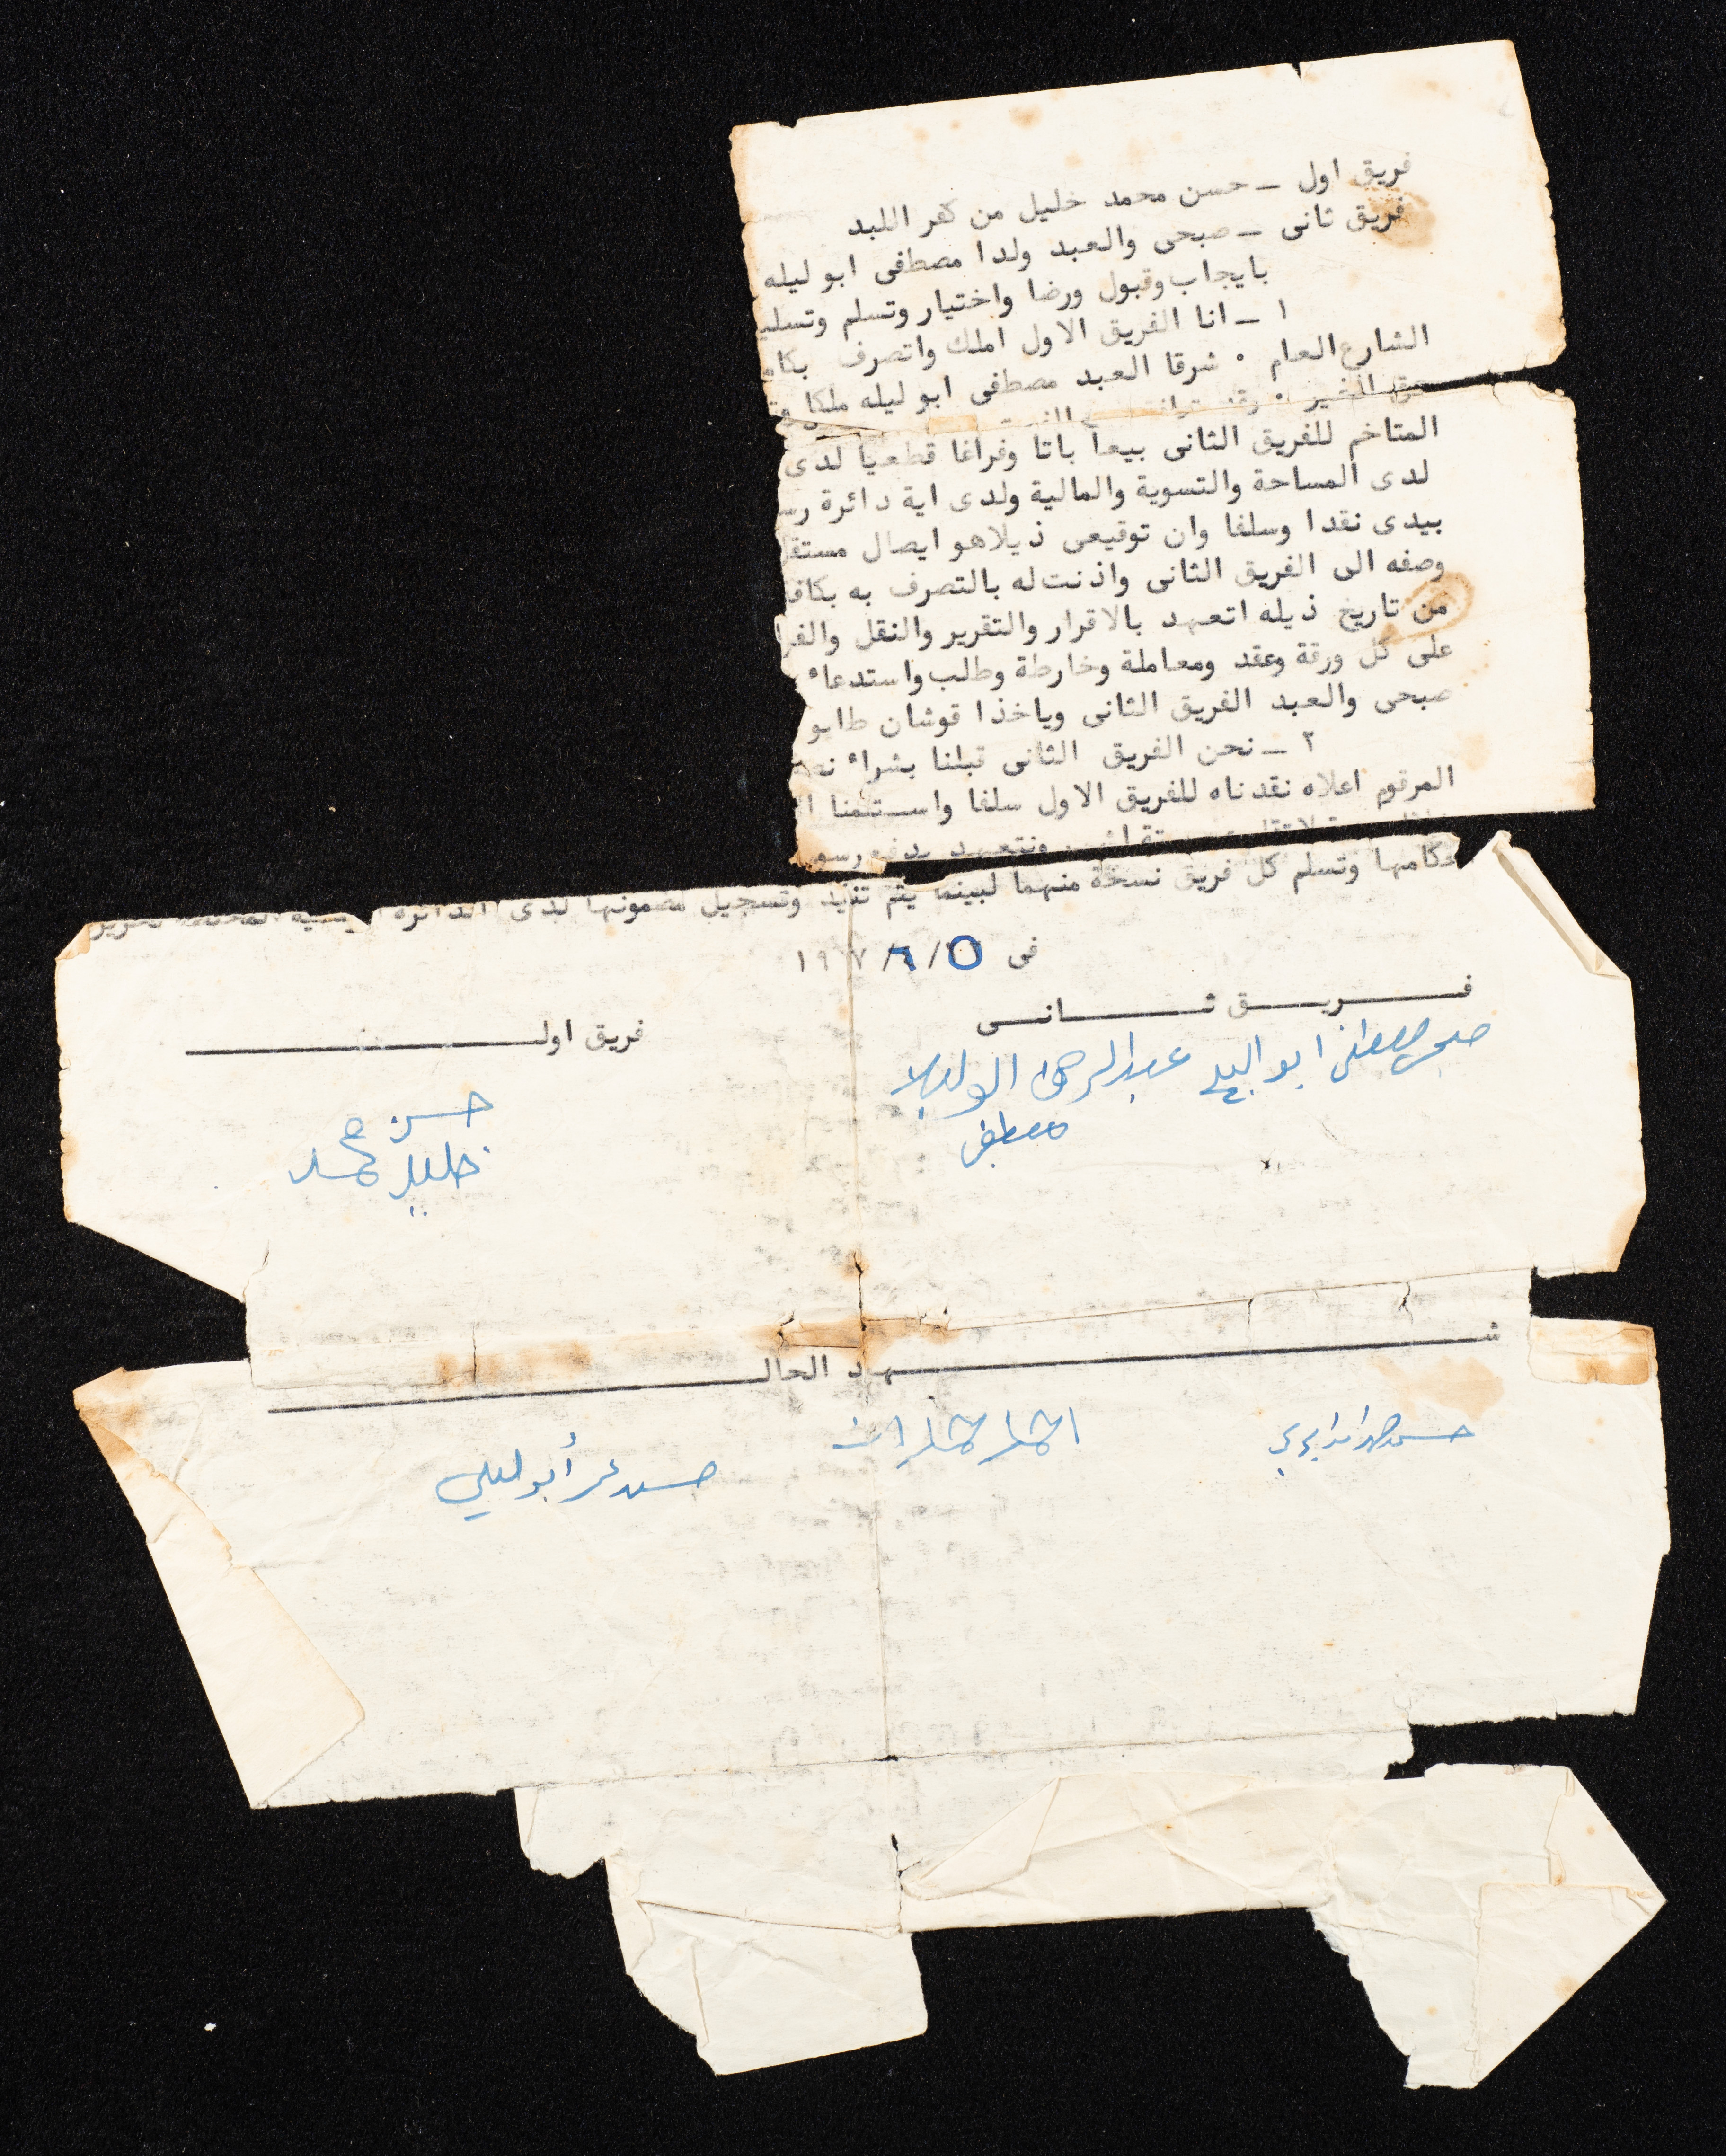 فريق اول ــ حسن محمد خليل من كفر اللبد
فريق ثانى ــ صبحى والعبد ولدا مصطفى ابو ليله
بايجاب وقبول ورضا واختيار وتسلم وتسلي
١ ــ انا الفريق الاول املك واتصرف بكام
الشارع العام ٠ شرقا العبد مصطفى ابو ليله ملكا
المتاخم للفريق الثانى بيعا باتا وفراغا قطعيا لدى
لدى المساحة والتسوية والمالية ولدى اية دائرة رس
بيدى نقدا وسلفا وان توقيعى ذيلاهو ايصال مستقل
وصفه الى الفريق الثانى واذنت له بالتصرف به بكاف
من تاريخ ذيله اتعهد بالاقرار والتقرير والنقل والفرا
على كل ورقة وعقد ومعاملة وخارطة وطلب واستدعاء
صبحى والعبد الفريق الثانى وياخذا قوشان طابو
٢ ــ نحن الفريق الثانى قبلنا بشراء نص
المرقوم اعلاه نقدناه للفريق الاول سلفا واستلمنا ا
ونتعهد بدفع رسو
حكامها وتسلم كل فريق نسخة منهما لبينما يتم تنفيذ وتسجيل مضمونها لدى الدائرة
فى ٥/٦/١٩٧
فريق ثانى
فريق اول
صبحي مصطفى ابو ليله عبد الرحمن ابو ليلا
مصطفى
حسن محمد
خليل
شهد الحال
حسن عمر أبو ليلى